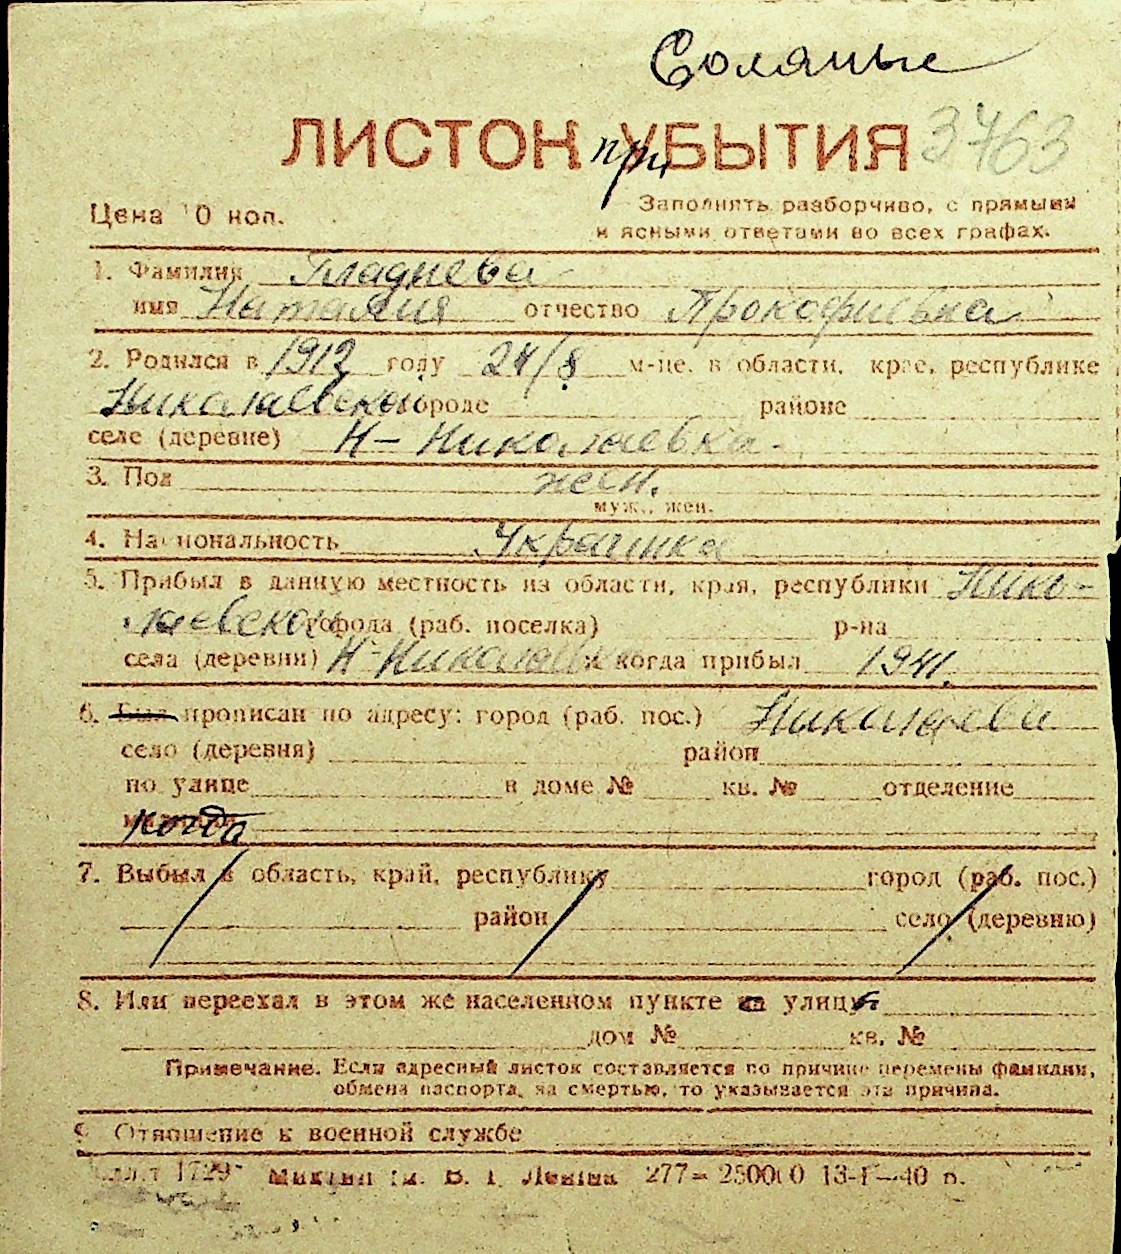 Соляные
ЛИСТОК при УБЫТИЯ 3463
Цена 10 коп.
Заполнять разборчиво, с прямыми
и ясными ответами во всех графах.
1. Фамилия Гладнева
имя Наталия отчество Прокофиевна
2. Родился в 1912 году 24/8 м-це, в области, крае, республике
Николаевской городе районе
селе (деревне) Н-Николаевка.
3. Пол жен.
муж., жен.
4. Национальность Украинка
5. Прибыл в данную местность из области, края, республики Нико-
лаевской города (раб. поселка) р-на
села (деревни) Н-Николаевка и когда прибыл 1941.
6. Был прописан по адресу: город (раб. пос.) Николаева
село (деревня) район
по улице в доме № кв. № отделение
когда
7. Выбыл в область, край, республику город (раб. пос.)
район село (деревню)
8. Или переехал в этом же населенном пункте на улицу
дом № кв. №
Примечание. Если адресный листок составляется по причине перемены фамилии,
обмена паспорта, за смертью, то указывается эта причина.
9. Отношение к военной службе
1729 Ленiна 277—250000 13-I—40 р.